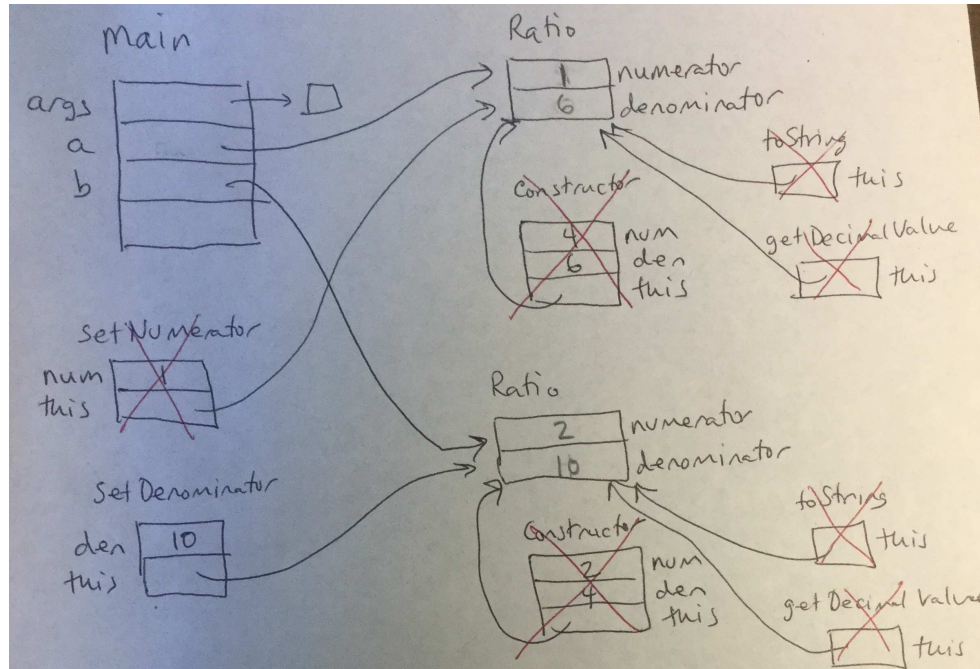 Main
args
a
b
Ratio
1 numerator
6 denominator
toString
this
Constructor
4 num
6 den
this
getDecimalValue
this
setNumerator
num 1
this
Ratio
2 numerator
10 denominator
SetDenominator
den 10
this
Constructor
2 num
4 den
this
toString
this
getDecimalValue
this